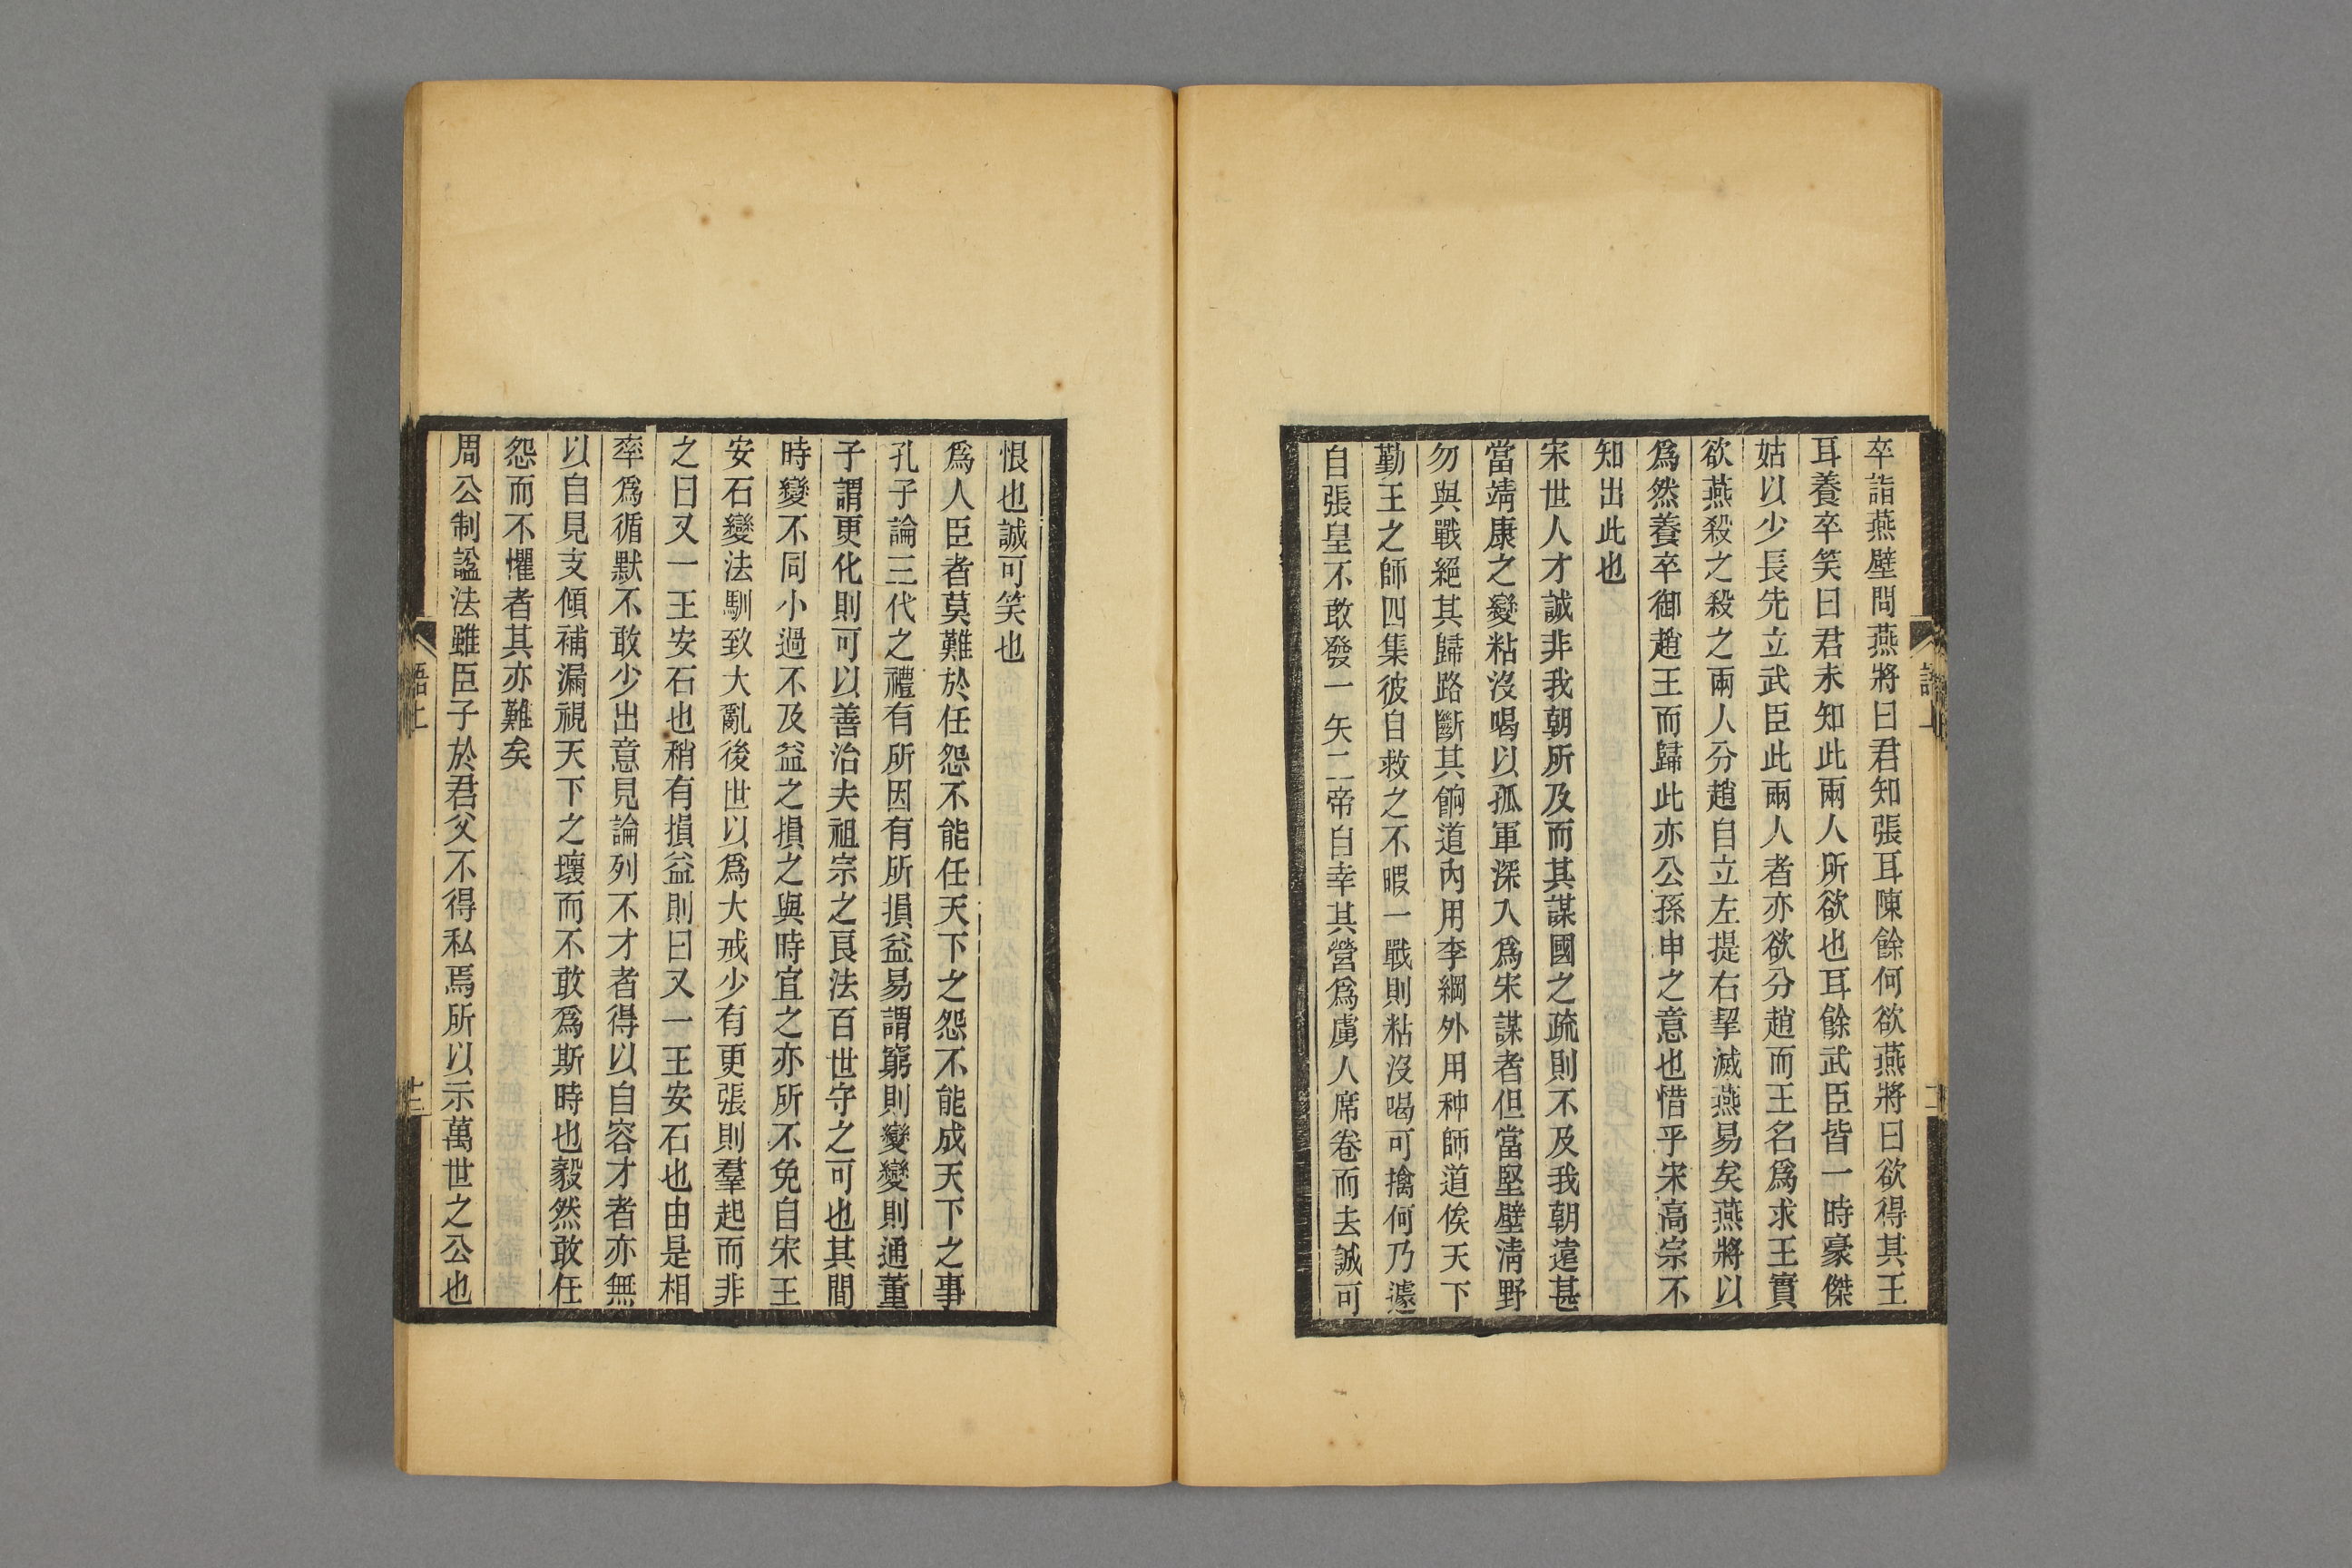 卒詣燕壁問燕將曰君知張耳陳餘何欲燕將曰欲得其王
耳養卒笑曰君未知此兩人所欲也耳餘武臣皆一時豪傑
姑以少長先立武臣此兩人者亦欲分趙而王名爲求王實
欲燕殺之殺之兩人分趙自立左提右挈滅燕易矣燕將以
爲然養卒御趙王而歸此亦公孫申之意也惜乎宋高宗不
知出此也
宋世人才誠非我朝所及而其謀國之疏則不及我朝遠甚
當靖康之變粘沒喝以孤軍深入爲宋謀者但當堅壁淸野
勿與戰絕其歸路斷其餉道內用李綱外用种師道俟天下
勤王之師四集彼自救之不暇一戰則粘沒喝可擒何乃遽
自張皇不敢發一矢二帝自幸其營爲虜人席卷而去誠可
恨也誠可笑也
爲人臣者莫難於任怨不能任天下之怨不能成天下之事
孔子論三代之禮有所因有所損益易謂窮則變變則通董
子謂更化則可以善治夫祖宗之良法百世守之可也其間
時變不同小過不及益之損之與時宜之亦所不免自宋王
安石變法馴致大亂後世以爲大戒少有更張則羣起而非
之曰又一王安石也稍有損益則曰又一王安石也由是相
率爲循默不敢少出意見論列不才者得以自容才者亦無
以自見支傾補漏視天下之壞而不敢爲斯時也毅然敢任
怨而不懼者其亦難矣
周公制諡法雖臣子於君父不得私焉所以示萬世之公也
語上